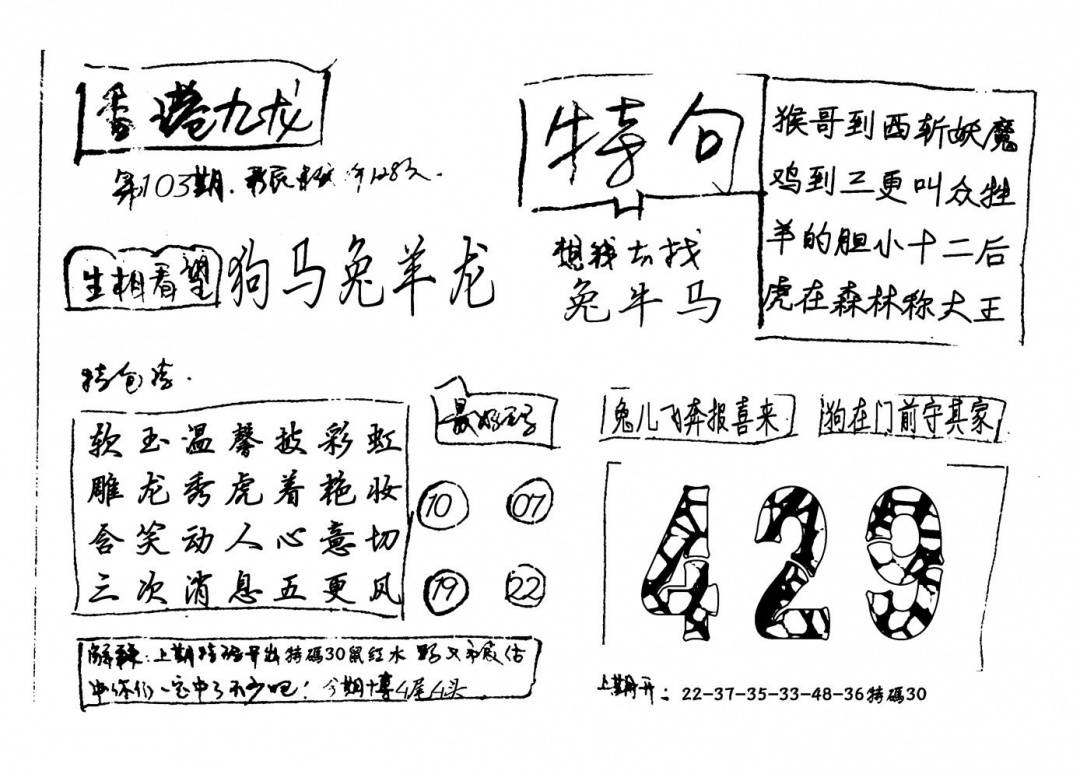 香港九龙
第103期
特句
猴哥到西斩妖魔
鸡到三更叫众牲
羊的胆小十二后
虎在森林称大王
生相看望
狗马兔羊龙
想我去找
兔牛马
特包
软玉温馨披彩虹
雕龙秀虎着艳妆
含笑动人心意切
三次消息五更风
10 07
19 22
兔儿飞奔报喜来
狗在门前守其家
429
解释:上期特码开出特碼30鼠红水
中你们一定中了不少吧!今期博4尾4头
上期开:22-37-35-33-48-36特碼30